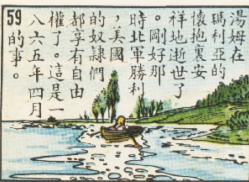 59
湯姆在
瑪利亞的
懷抱裏安
祥地逝世了
。剛好那
時北軍勝利
，美國
的奴隸們
都享有自由
權了。這是一
八六五年四月
的事。